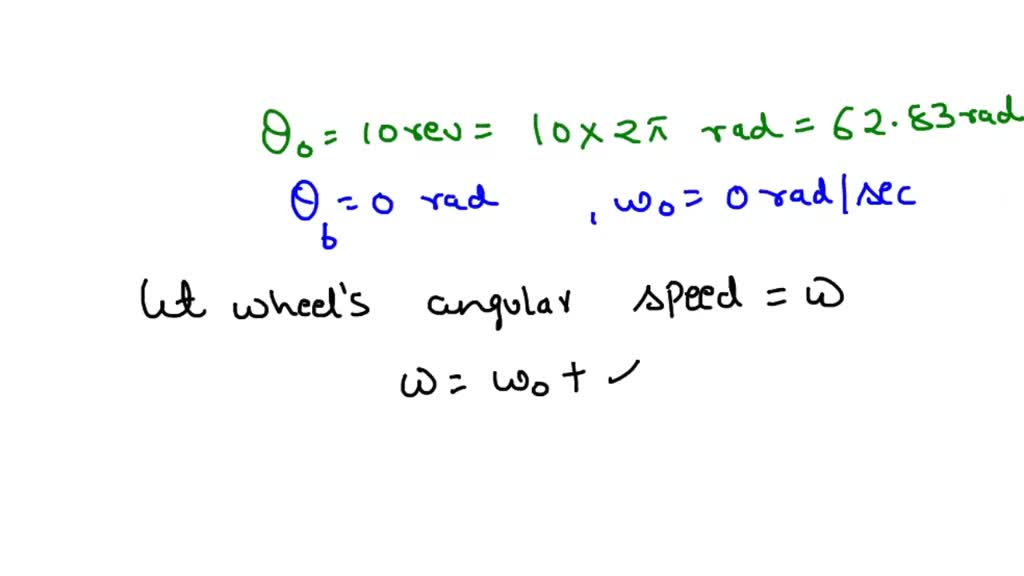 θ₀ = 10 rev = 10 × 2π rad = 62.83 rad
θ_b = 0 rad , ω₀ = 0 rad/sec
let wheel's angular speed = ω
ω = ω₀ +